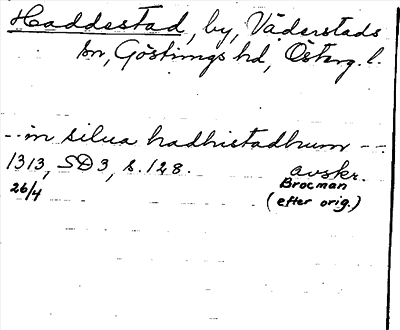 Haddestad, by, Väderstads
sn, Göstrings hd, Österg. l.
-- in silua hadhistadhum --
1313, SD3, s. 128. avskr.
26/4 Brocman
(efter orig.)